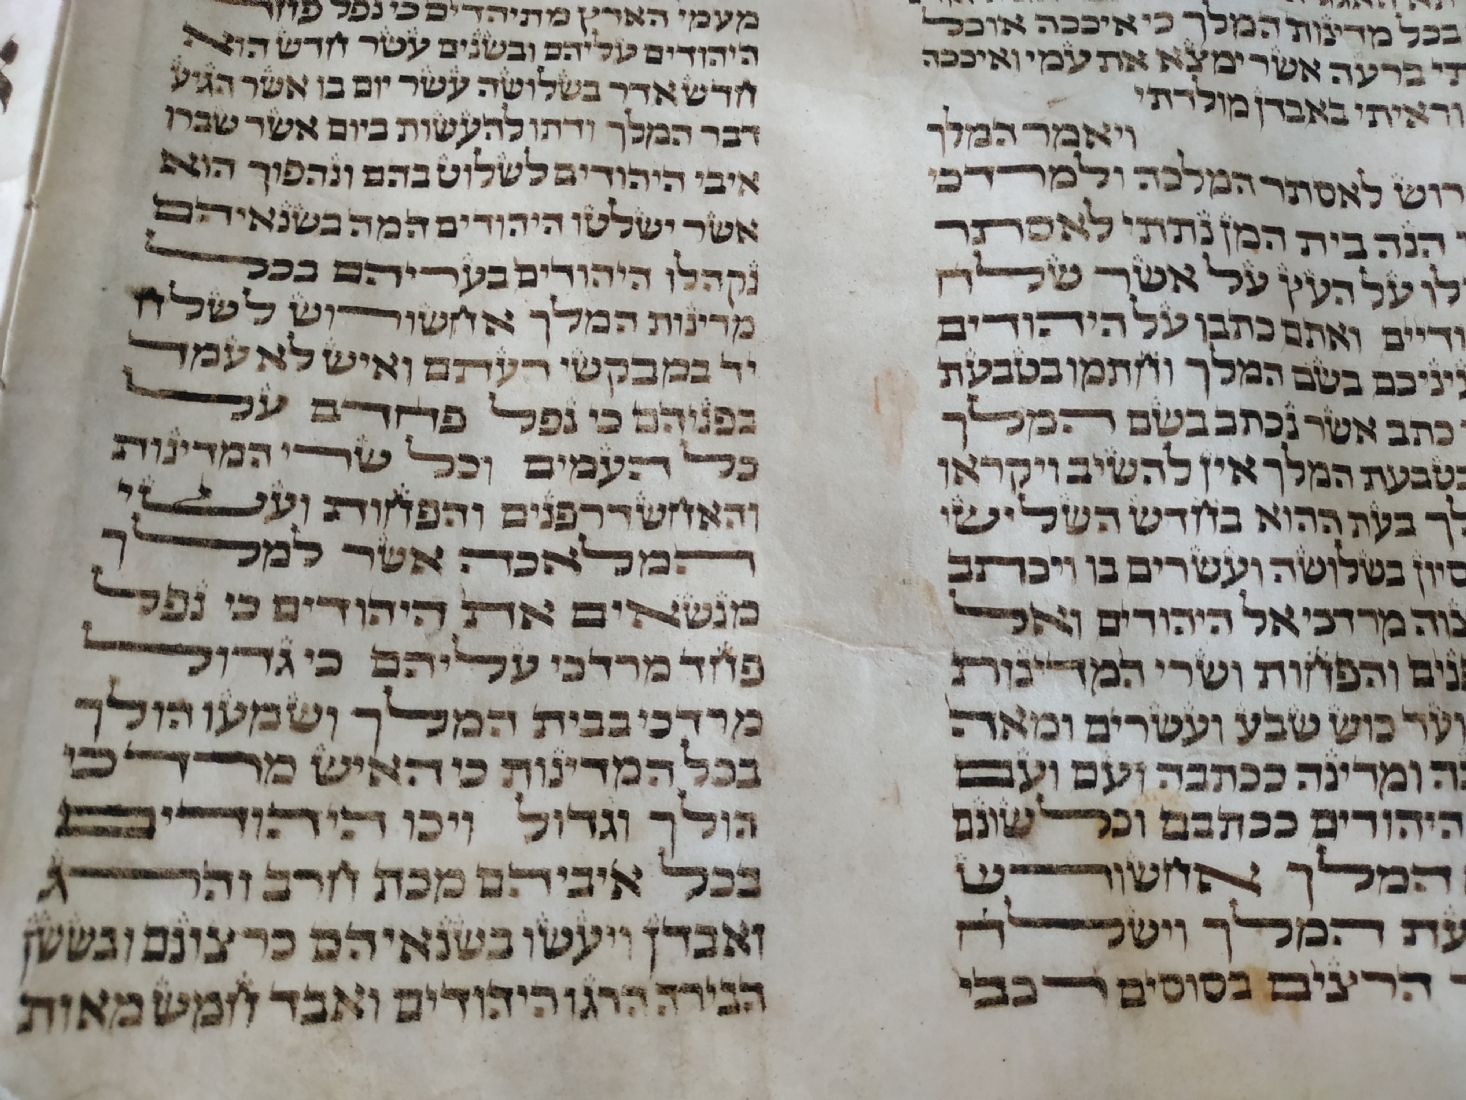 בכל מדינות המלך כי איככה אוכל
ברעה אשר ימצא את עמי ואיככה
וראיתי באבדן מולדתי
ויאמר המלך
לאסתר המלכה ולמרדכי
הנה בית המן נתתי לאסתר
על העץ על אשר שלח
ואתם כתבו על היהודים
בשם המלך וחתמו בטבעת
כתב אשר נכתב בשם המלך
בטבעת המלך אין להשיב ויקראו
בעת ההוא בחדש השלישי
סיון בשלושה ועשרים בו ויכתב
מרדכי אל היהודים ואל
והפחות ושרי המדינות
ועד כוש שבע ועשרים ומאה
ומדינה ככתבה ועם ועם
היהודים ככתבם וכלשונם
המלך אחשורש
המלך וישלח
הרצים בסוסים רכבי
מעמי הארץ מתיהדים כי נפל פחד
היהודים עליהם ובשנים עשר חדש הוא
חדש אדר בשלושה עשר יום בו אשר הגיע
דבר המלך ודתו להעשות ביום אשר שברו
איבי היהודים לשלוט בהם ונהפוך הוא
אשר ישלטו היהודים המה בשנאיהם
נקהלו היהודים בעריהם בכל
מדינות המלך אחשורוש לשלח
יד במבקשי רעתם ואיש לא עמד
בפניהם כי נפל פחדם על
כל העמים וכל שרי המדינות
והאחשדרפנים והפחות ועשי
המלאכה אשר למלך
מנשאים את היהודים כי נפל
פחד מרדכי עליהם כי גדול
מרדכי בבית המלך ושמעו הולך
בכל המדינות כי האיש מרדכי
הולך וגדול ויכו היהודים
בכל איביהם מכת חרב והרג
ואבדן ויעשו בשנאיהם כרצונם ובשושן
הבירה הרגו היהודים ואבד חמש מאות